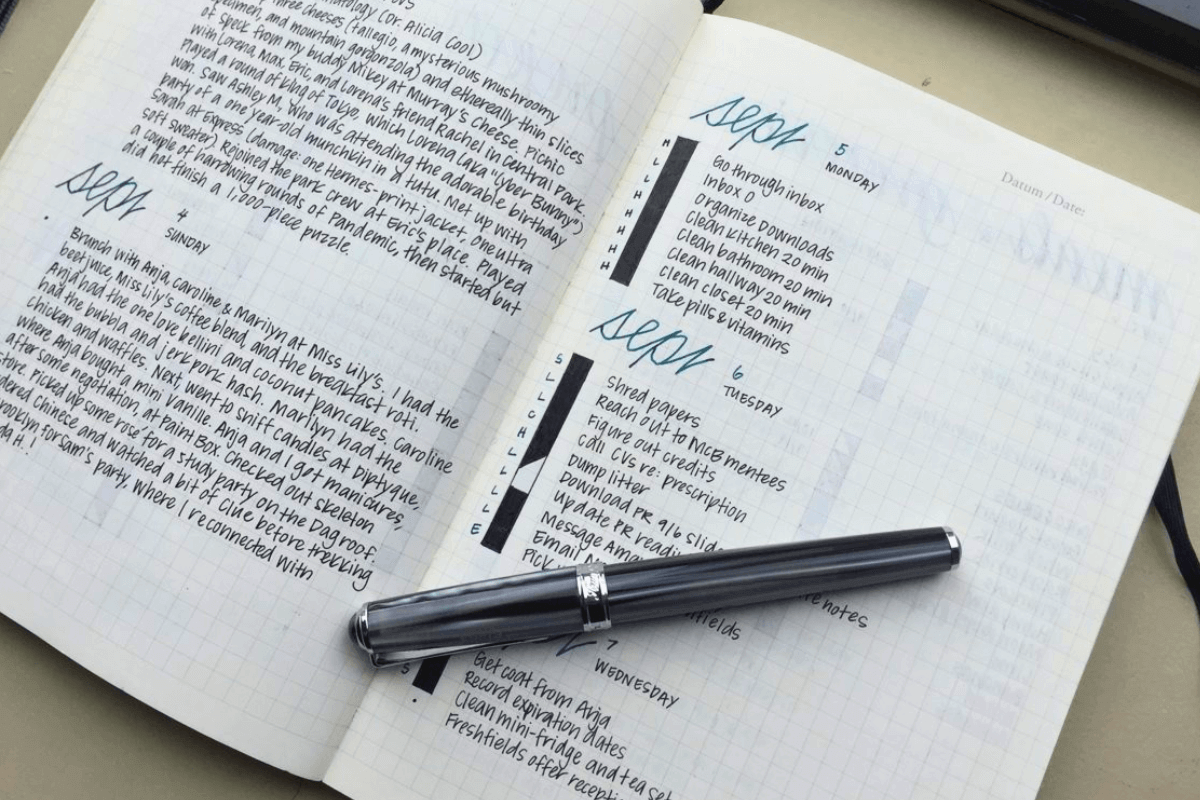 matology (Dr. Alicia Cool)
three cheeses (tallegio, a mysterious mushroom
specimen, and mountain gorgonzola) and ethereally thin slices
of speck from my buddy Mikey at Murray's Cheese. Picnic
with Lorena, Max, Eric, and Lorena's friend Rachel in Central Park.
Played a round of King of Tokyo, which Lorena (aka "Cyber Bunny")
won. Saw Ashley M, who was attending the adorable birthday
party of a one year old munchkin in a tutu. Met up with
Sarah at Express (damage: one Hermes-print jacket, one ultra
soft sweater) Rejoined the park crew at Eric's place. Played
a couple of harrowing rounds of Pandemic, then started but
did not finish a 1,000-piece puzzle.
sept 4
SUNDAY
Brunch with Anja, Caroline & Marilyn at Miss Lily's. I had the
beet juice, Miss Lily's coffee blend, and the breakfast roti.
Anja had the one love bellini and coconut pancakes, Caroline
had the bubbla and jerk pork hash. Marilyn had the
chicken and waffles. Next, went to sniff candles at Diptyque,
where Anja bought a mini Vanille. Anja and I got manicures,
after some negotiation, at Paint Box. Checked out skeleton
store. Picked up some rosé for a study party on the Dag roof.
dered Chinese and watched a bit of Clue before trekking
rooklyn for Sam's party, where I reconnected with
da H.!
Datum / Date:
sept 5
MONDAY
Go through inbox
Inbox 0
Organize Downloads
Clean kitchen 20 min
Clean bathroom 20 min
Clean hallway 20 min
Clean closet 20 min
Take pills & vitamins
M
L
L
H
H
H
H
H
sept 6
TUESDAY
Shred papers
Reach out to MCB mentees
Figure out credits
Call CVS re: prescription
Dump litter
Download PR 9/6 slide
Update PR readi
Message Ama
Email
Pick
re notes
hfields
S
L
L
C
H
L
L
L
L
E
7
WEDNESDAY
Get coat from Anja
Record expiration dates
Clean mini-fridge and tea set
Freshfields offer recepti
S